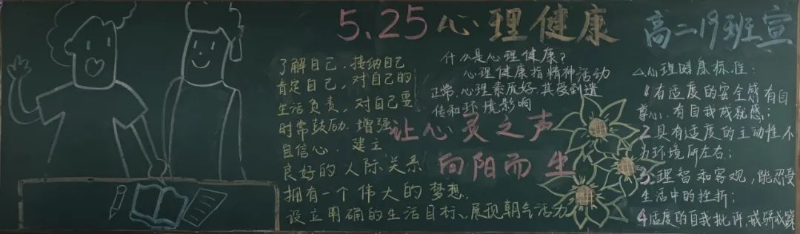 5.25心理健康
高二19班宣
了解自己、接纳自己
肯定自己、对自己的
生活负责，对自己要
时常鼓励、增强
自信心、建立
良好的人际关系
拥有一个伟大的梦想.
设立明确的生活目标、展现朝气活力
什么是心理健康？
心理健康指精神活动
正常、心理素质好，其受到遗
传和环境影响
让心灵之声
向阳而生
心理健康标准：
1.有适度的安全感，有自
尊心，有自我成就感；
2.具有适度的主动性，不
为环境所左右；
3.理智和客观，能忍受
生活中的挫折；
4.适度的自我批评，